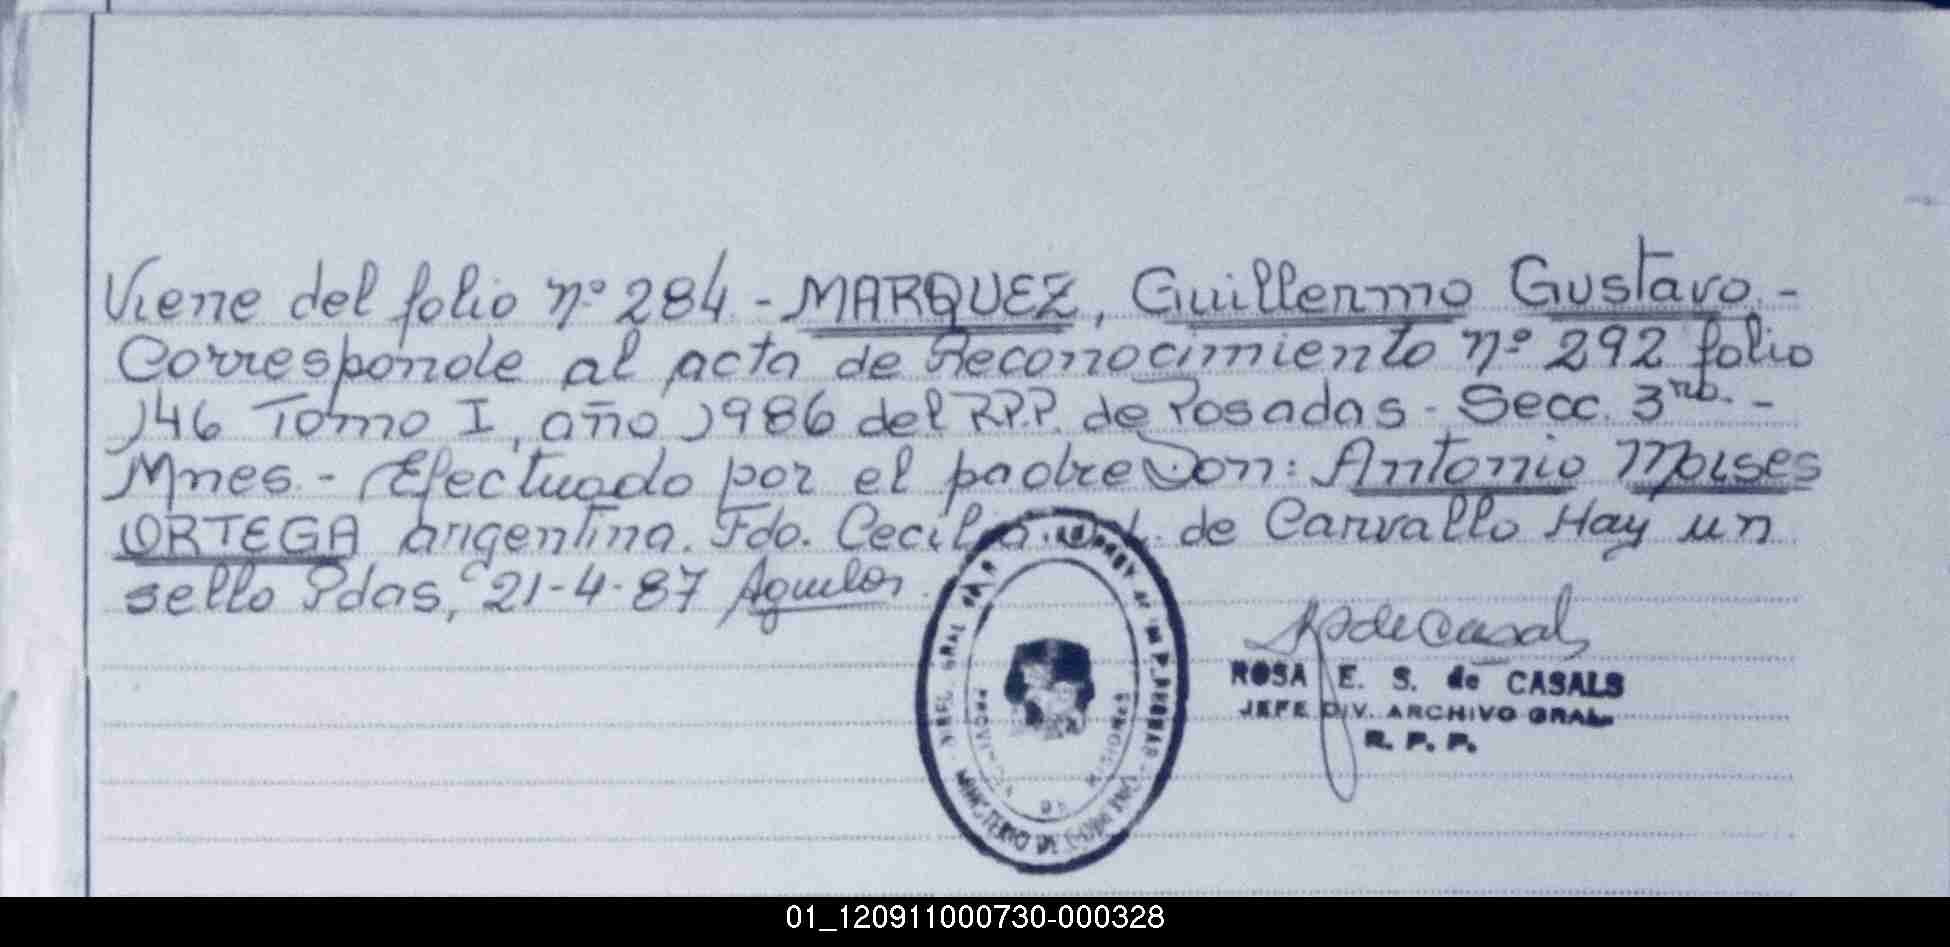 Viene del folio nº 284 - MARQUEZ, Guillermo Gustavo. -
Corresponde al acta de Reconocimiento nº 292 folio
146 Tomo I, año 1986 del R.P.P. de Posadas - Secc. 3ra. -
Mnes. - Efectuado por el padre Don: Antonio Moises
ORTEGA argentino. Fdo. Cecilia de Carvallo Hay un
sello Pdas, 21-4-87 Aguilar.
MINISTERIO DE GOBIERNO
PROVINCIA DE MISIONES
R de Casals
ROSA E. S. de CASALS
JEFE DIV. ARCHIVO GRAL.
R. P. P.
01_120911000730-000328